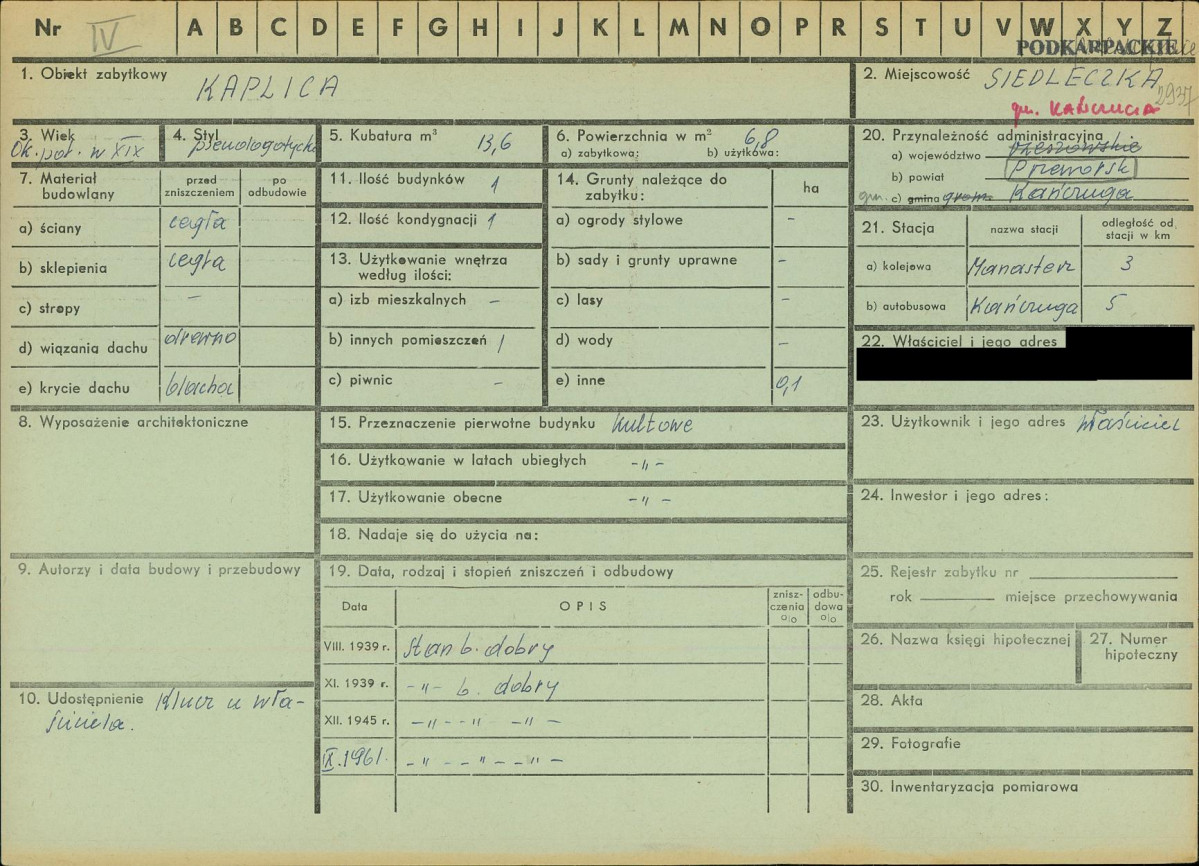 Nr IV A B C D E F G H I J K L M N O P R S T U V W X Y Z
PODKARPACKIE
1. Obiekt zabytkowy KAPLICA
2. Miejscowość SIEDLECZKA
2937
gm. KAŃCZUGA
3. Wiek Ok. poł. w XIX
4. Styl pseudogotycki
5. Kubatura m³ 13,6
6. Powierzchnia w m² 6,8
a) zabytkowa: b) użytkowa:
20. Przynależność administracyjna
a) województwo rzeszowskie
b) powiat Przeworsk
gm. c) gmina grom. Kańczuga
7. Materiał budowlany
przed zniszczeniem
po odbudowie
a) ściany cegła
b) sklepienia cegła
c) stropy –
d) wiązania dachu drewno
e) krycie dachu blacha
11. Ilość budynków 1
12. Ilość kondygnacji 1
13. Użytkowanie wnętrza
według ilości:
a) izb mieszkalnych –
b) innych pomieszczeń 1
c) piwnic –
14. Grunty należące do
zabytku:
ha
a) ogrody stylowe –
b) sady i grunty uprawne –
c) lasy –
d) wody –
e) inne 0,1
21. Stacja
nazwa stacji
odległość od
stacji w km
a) kolejowa Manasterz 3
b) autobusowa Kańczuga 5
22. Właściciel i jego adres
8. Wyposażenie architektoniczne
15. Przeznaczenie pierwotne budynku kultowe
16. Użytkowanie w latach ubiegłych -„-
17. Użytkowanie obecne -„-
18. Nadaje się do użycia na:
23. Użytkownik i jego adres właściciel
24. Inwestor i jego adres:
9. Autorzy i data budowy i przebudowy
19. Data, rodzaj i stopień zniszczeń i odbudowy
Data
OPIS
znisz-
czenia
o|o
odbu-
dowa
o|o
VIII. 1939 r. Stan b. dobry
XI. 1939 r. -„- b. dobry
XII. 1945 r. -„- -„- -„-
IX.1961. -„- -„- -„-
25. Rejestr zabytku nr
rok miejsce przechowywania
26. Nazwa księgi hipotecznej
27. Numer
hipoteczny
10. Udostępnienie Klucz u wła-
ściciela.
28. Akta
29. Fotografie
30. Inwentaryzacja pomiarowa